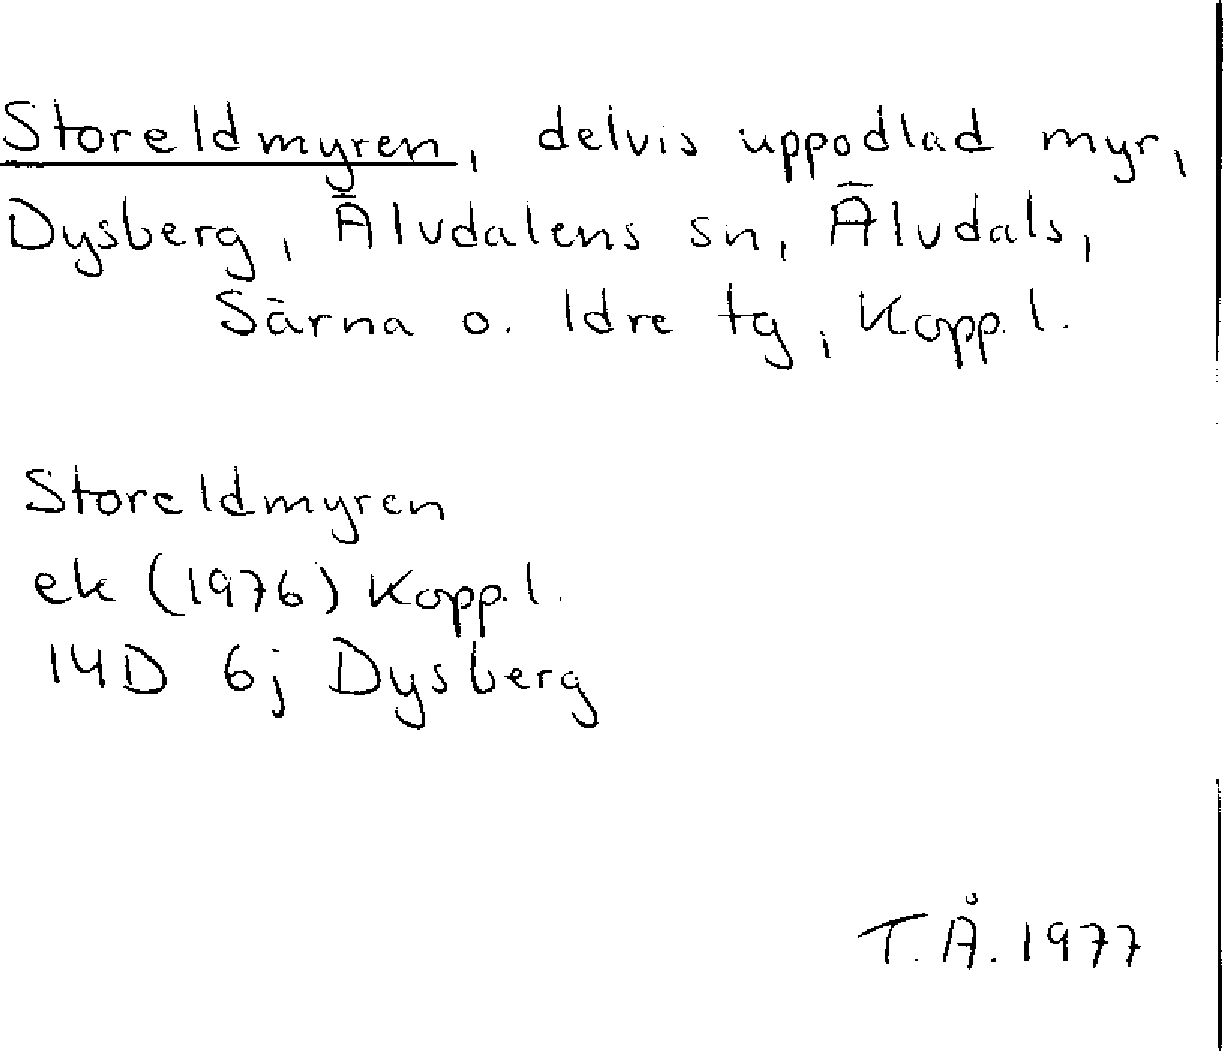 Storeldmyren, delvis uppodlad myr,
Dysberg, Älvdalens sn, Älvdals,
Särna o. Idre tg, Kopp.l.
Storeldmyren
ek (1976) Kopp.l.
14D 6j Dysberg
T.Å. 1977